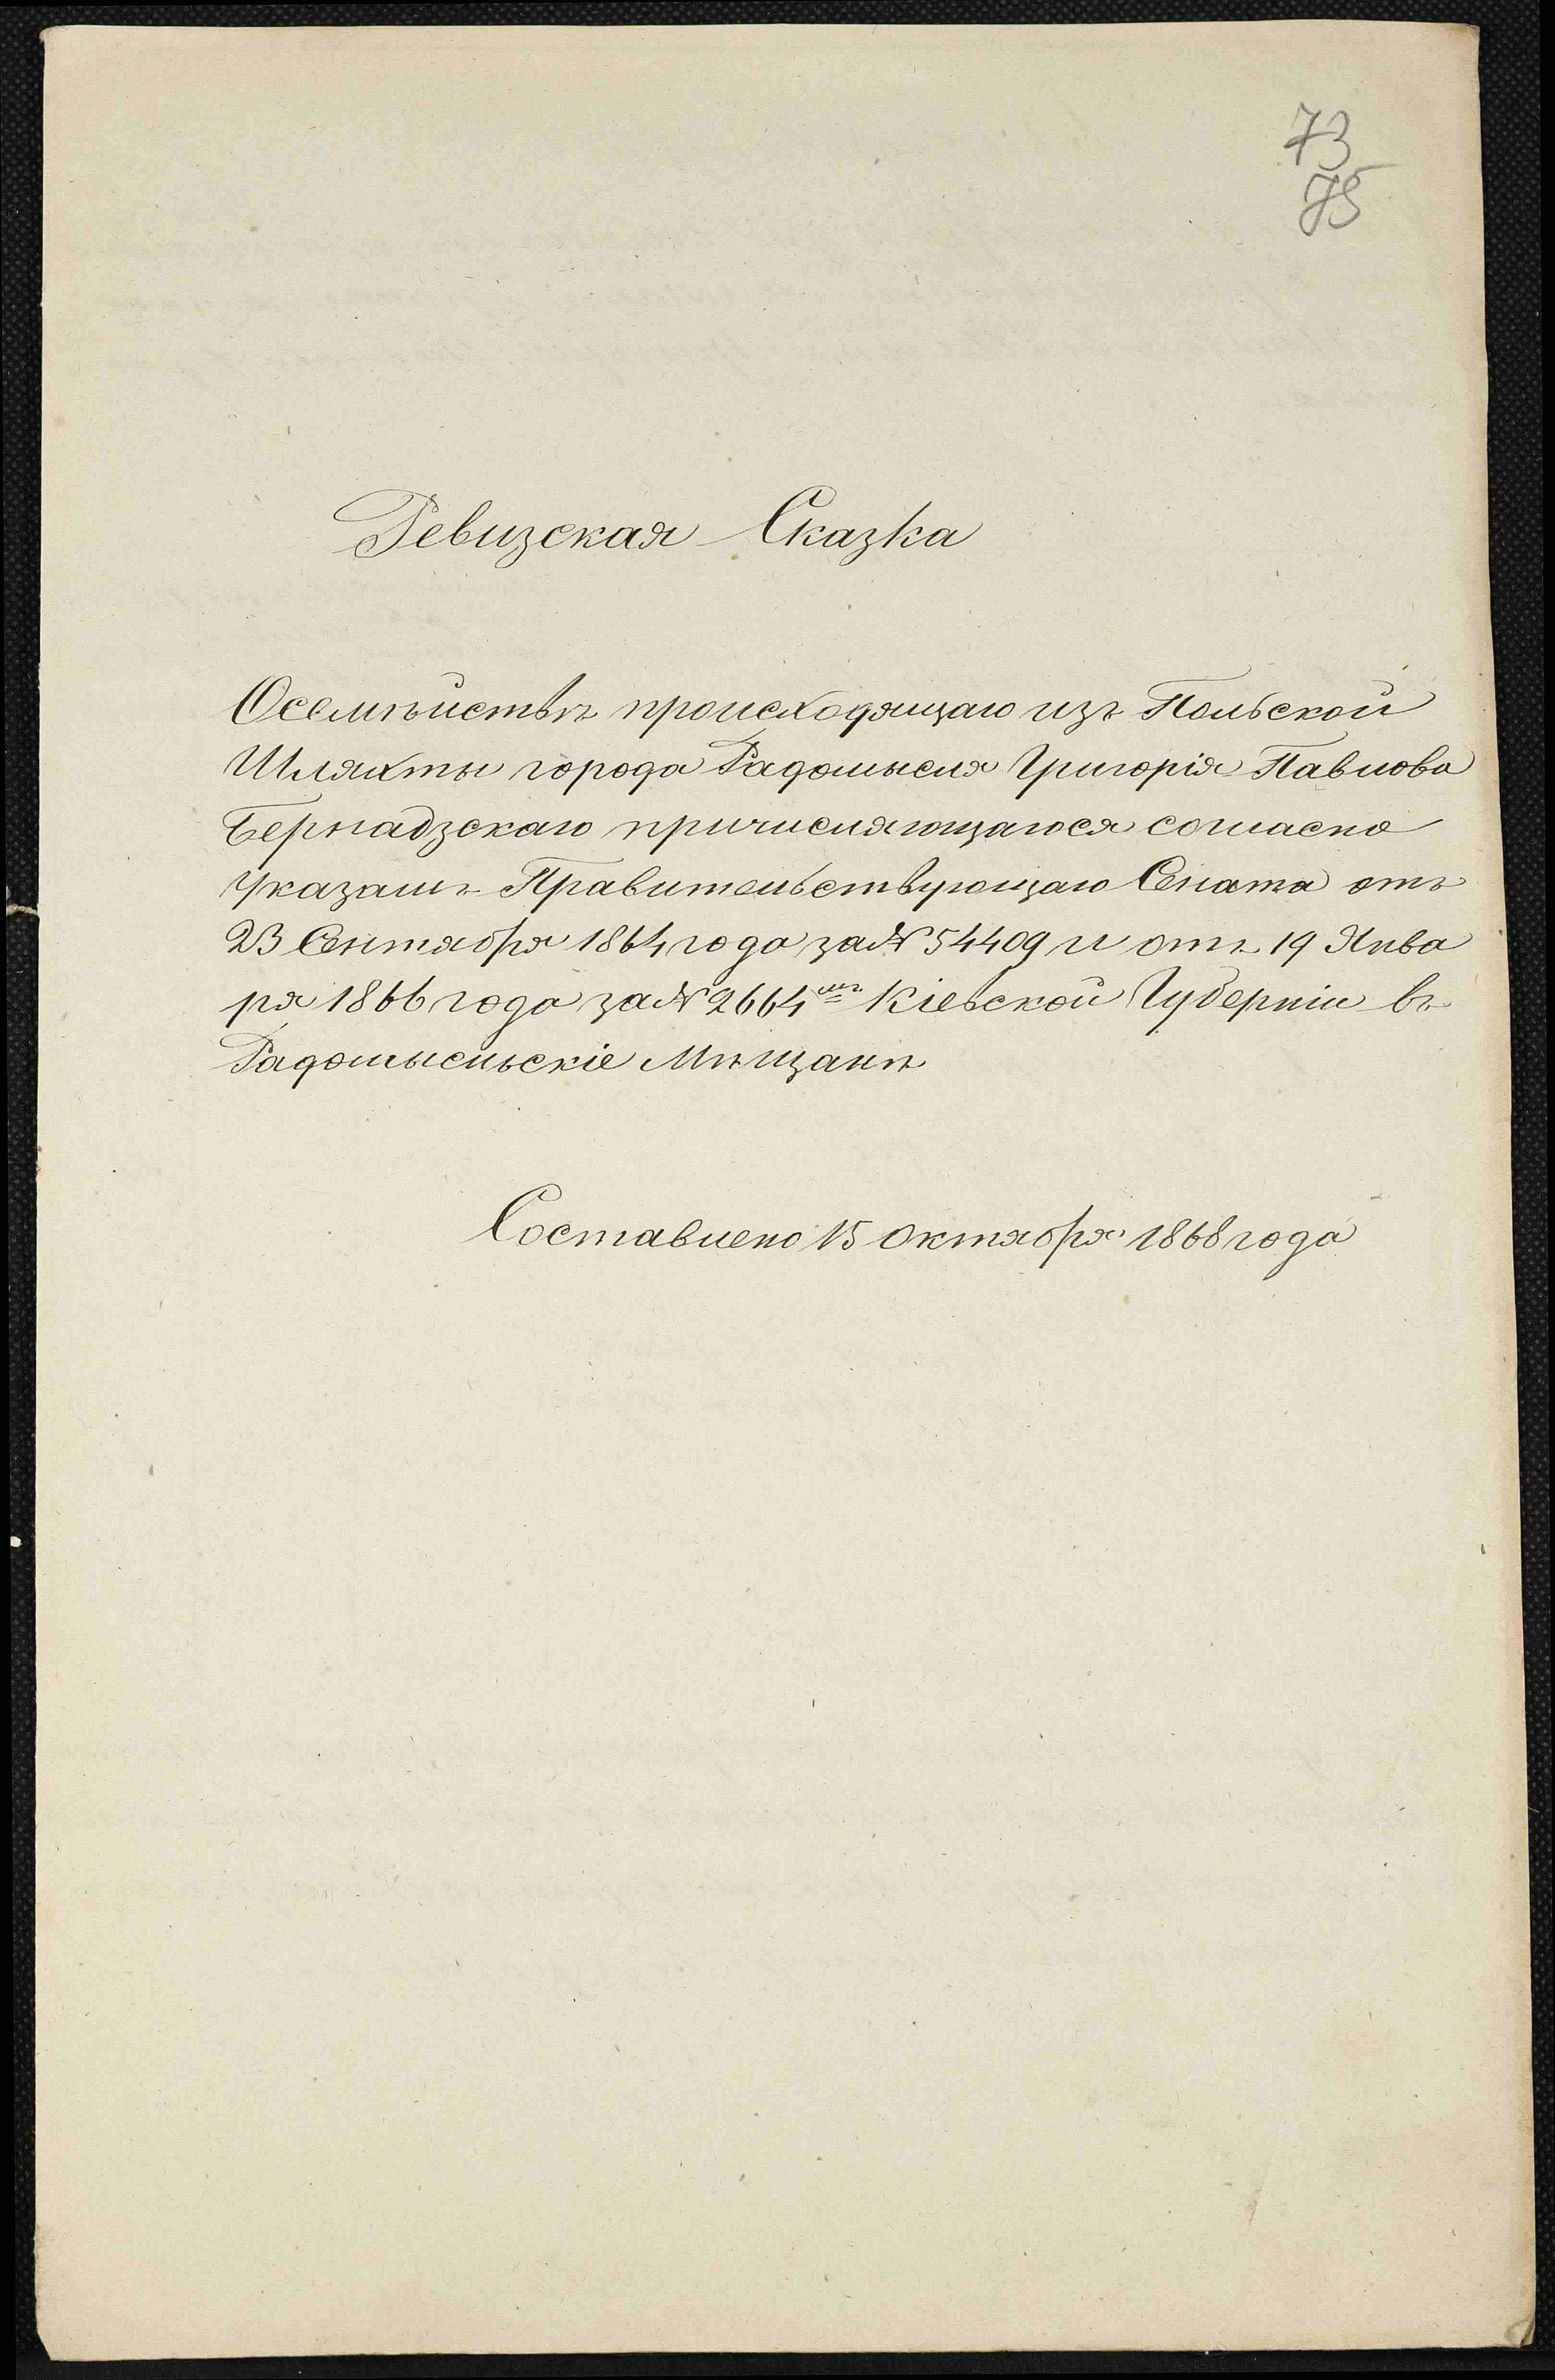 73
75
Ревизская Сказка
Осемѣйствѣ происходящаго изъ Польской
Шляхты города Радомысля Григорія Павлова
Бернадзскаго причисляющагося согласно
Указамъ Правительствующаго Сената отъ
23 Сентября 1864 года за № 54409 и отъ 19 Янва
ря 1866 года за № 2664мъ Кіевской Губерніи въ
Радомысльскіе Мѣщанѣ
Составлено 15 Октября 1868 года